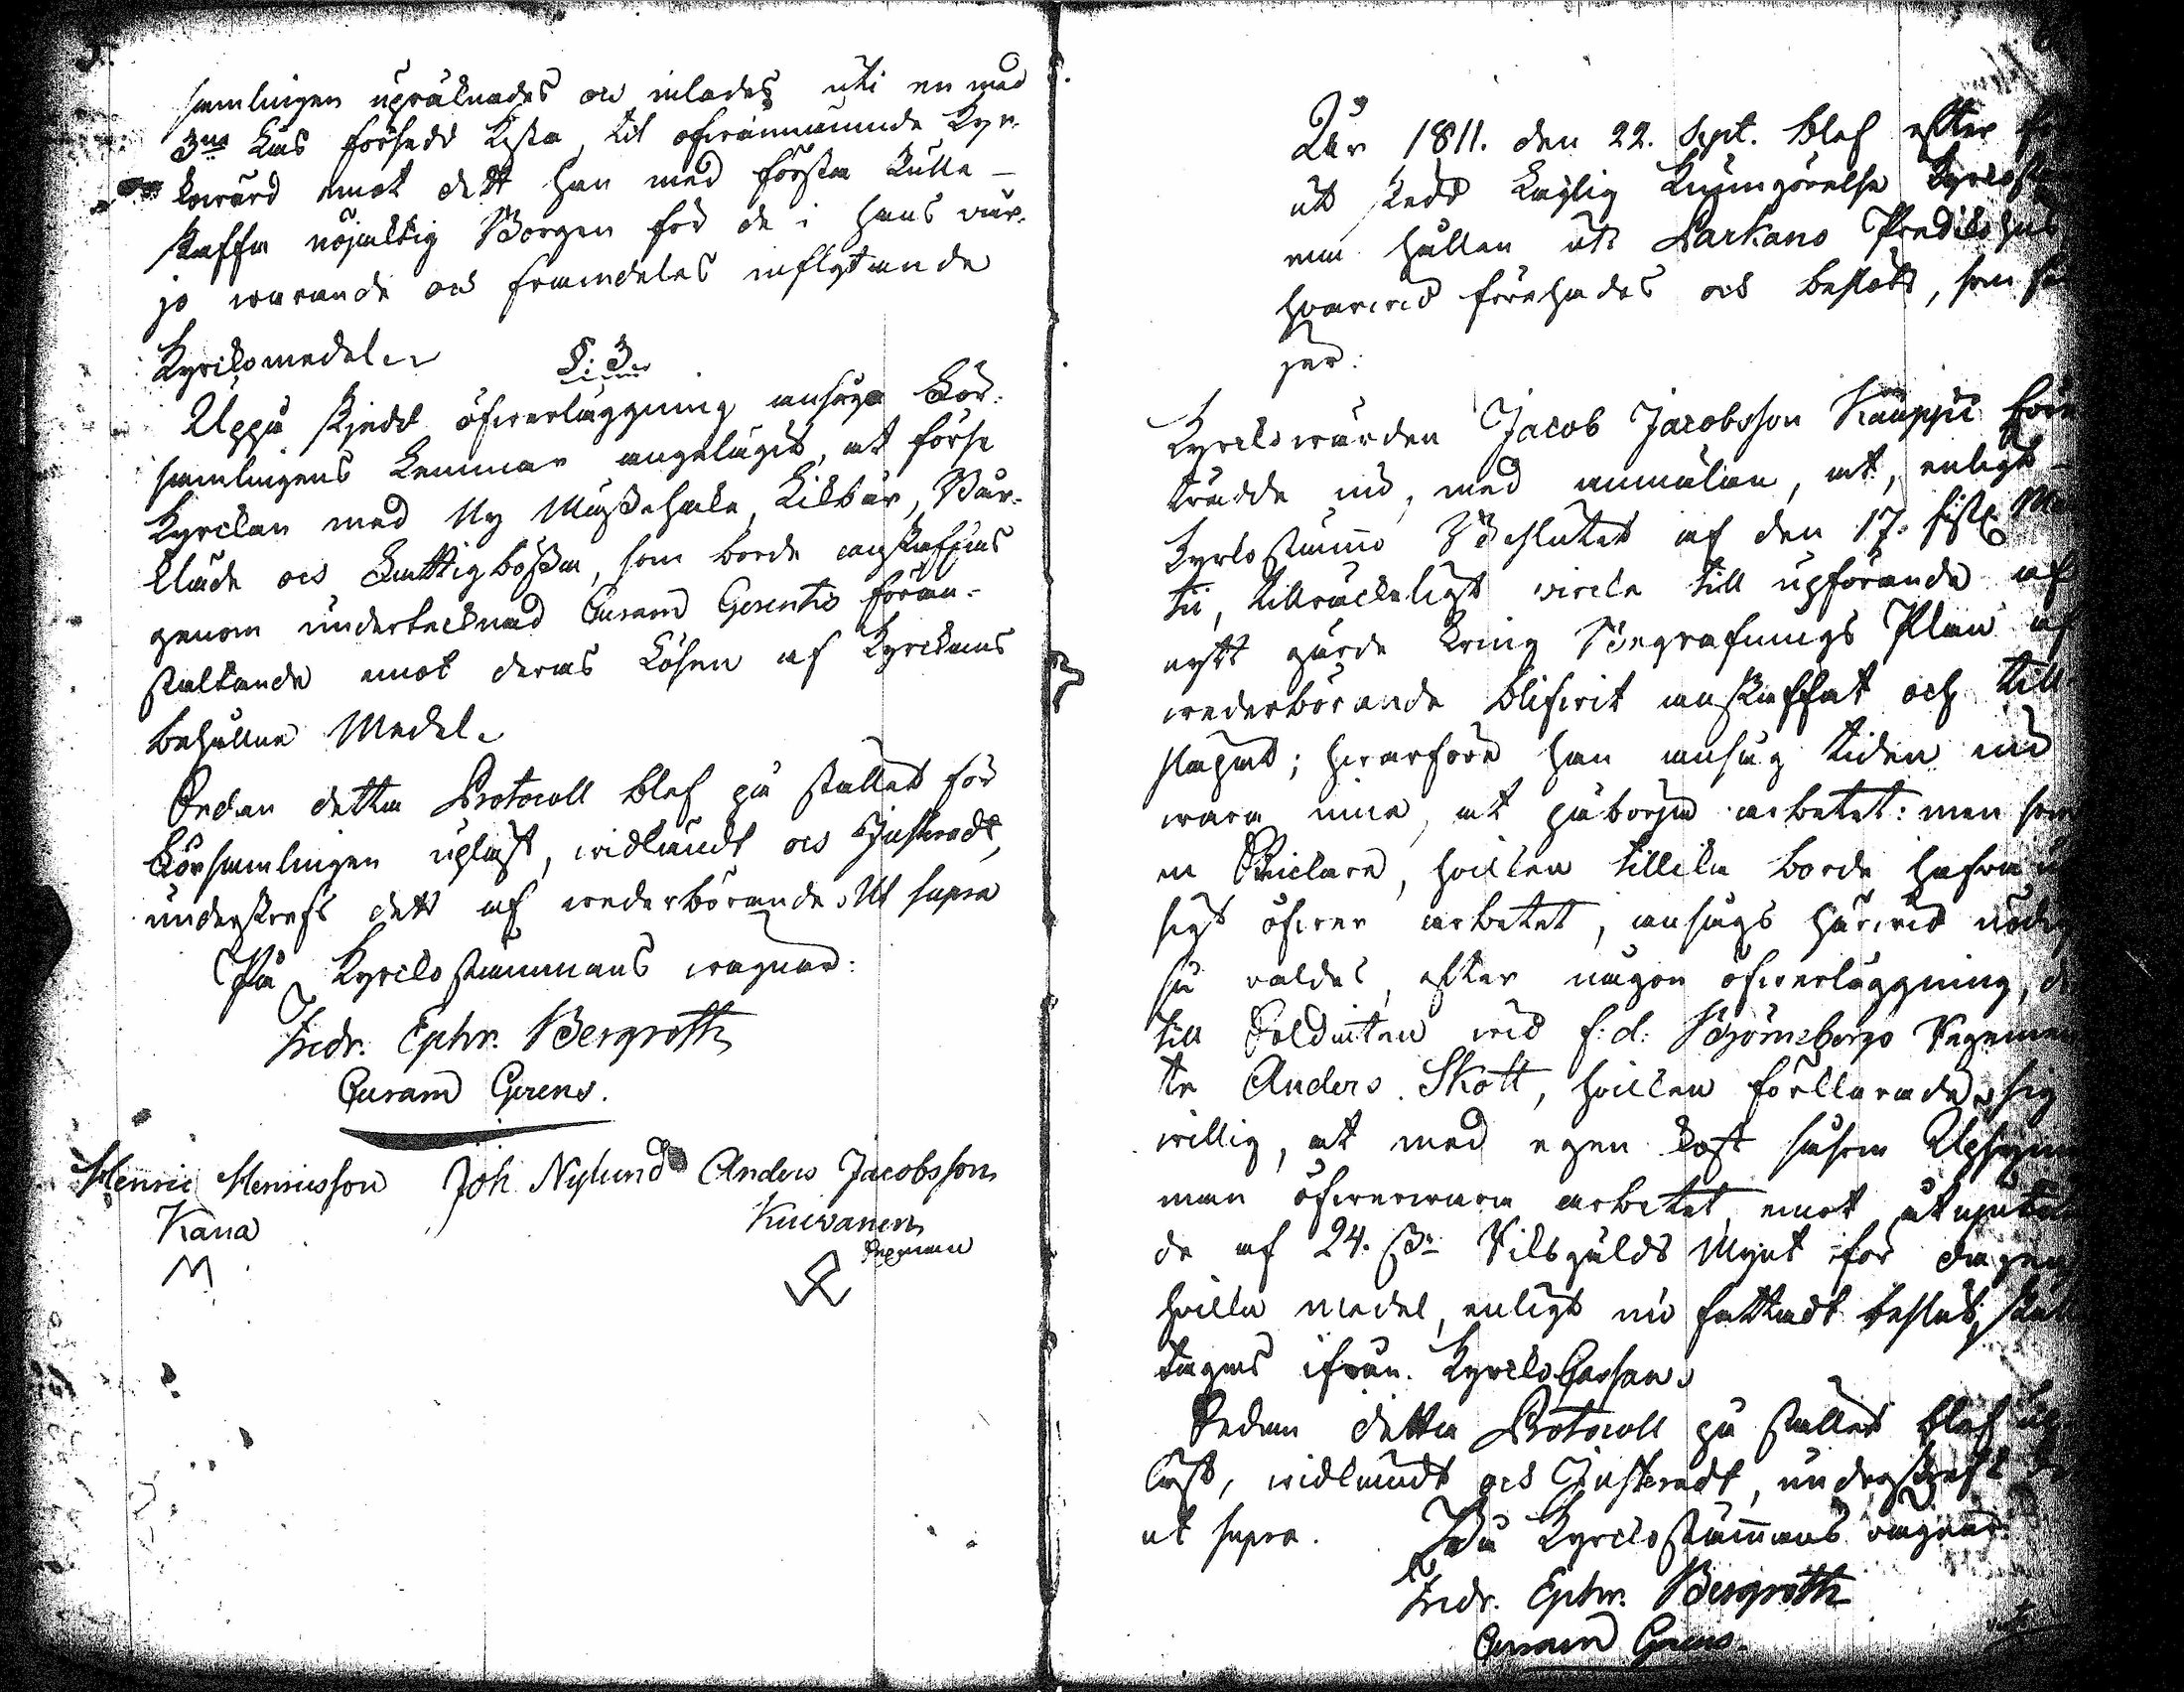 samlingen upräknades och inlades uti en med
3ne Lås försedd Kista, til ofvannämnde Kyr-
kovärd emot det han med första skulle
skaffa nöjaktig Borgen för de i hans vär-
jo warande och framdeles inflytande
Kyrkomedel.
§. 3.
Uppå skjedd öfverläggning ansågo För-
samlingens Lemmar angelägit, at förse
Kyrckan med Ny Mässehake, Likbår, Bår-
kläde och Fattigbössa, som borde anskaffas
genom undertecknad Curam Gerentis föran-
staltande emot deras Lösen af Kyrckans
behållne Medel.
Sedan detta Protocoll blef på stället för
Församlingen upläst, widkändt och Justeradt,
underskrefs dett af wederbörande. Ut supra
På Kyrckostämmans wägnar:
Fredr. Ephr. Bergroth
Curam Gerens.
Henric Henricsson Joh. Nylund Anders Jacobsson
Kana Kuivanen
M
År 1811. den 22. Sept. blef efter
ut skedd Laglig Kungörelse Kyrkostä
ma hållen uti Parkano Predikohus
hvarvid förehades och beslöts, som föl
jer:
Kyrckowärden Jacob Jacobsson Kauppi före
trädde nu, med anmälan, at, enligt
Kyrkostämmo Beslutet af den 17. sistl. Mar
tii, tillräckeligt virke till upförande af
nytt gärde kring Begrafnings Plan af
wederbörande blifvit anskaffat och till
släpat; hvarföre han ansåg tiden nu
wara inne, at påbörja arbetet: men som
en Snickare, hvilken tillika borde hafva up
sigt öfver arbetet, ansågs härvid nödig
så valdes, efter någon öfverläggning, der
till Soldaten wid f: d: Björneborgs Regemen
te Anders Skott, hvilken förklarade sig
willig, at med egen kost såsom Upsynings
man öfvervara arbetet, emot åtnjutan
de af 24. sk. Riksgälds Mynt för dagen
hvilka medel, enligt nu fattadt beslut, skulle
tagas ifrån Kyrcko Cassan.
Sedan detta Protocoll på stället blef up
läst, widkändt och Justeradt, underskrefs
ut supra. På Kyrckostämmans wägnar:
Fredr. Ephr. Bergroth
Curam Gerens.